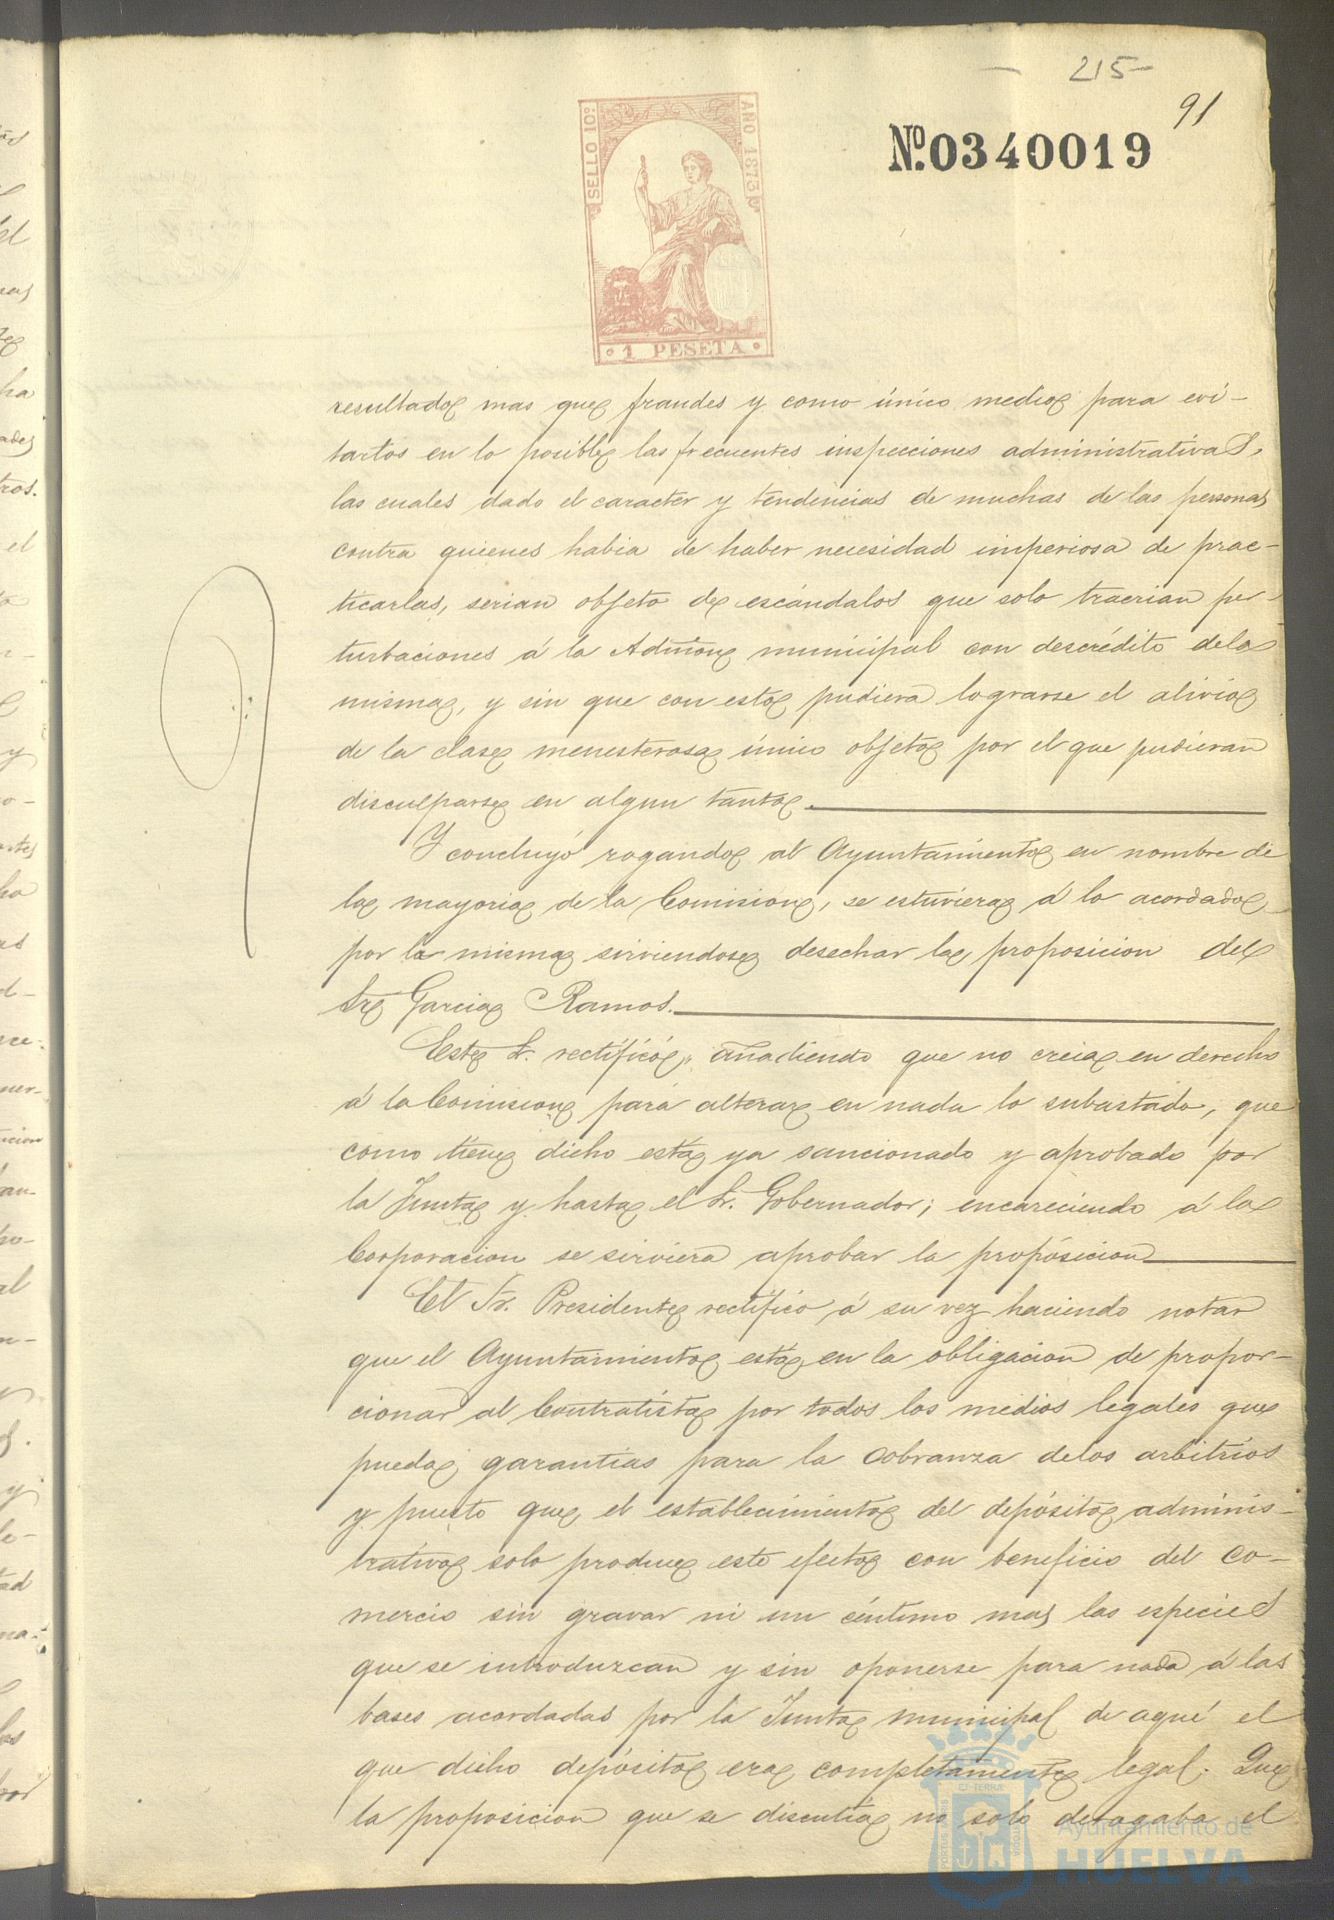 215-
91
Nº.0340019
SELLO 10º
AÑO 1873
1 PESETA
resultado mas que fraudes y como único medio para evi-
tarlos en lo posible las frecuentes inspecciones administrativas,
las cuales dado el caracter y tendencias de muchas de las personas
contra quienes habia de haber necesidad imperiosa de prac-
ticarlas, serian objeto de escándalos que solo traerian per-
turbaciones á la Admon municipal con descrédito de la
misma, y sin que con esto pudiera lograrse el alivio
de la clase menesterosa único objeto por el que pudieran
disculparse en algun tanto.
Y concluyó rogando al Ayuntamiento en nombre de
la mayoria de la Comision, se estuviera á lo acordado
por la misma sirviendose desechar la proposicion del
Sr Garcia Ramos.
Este Sr. rectificó, añadiendo que no creia en derecho
á la Comision para alterar en nada lo subastado, que
como tiene dicho está ya sancionado y aprobado por
la Junta y hasta el Sr. Gobernador; encareciendo á la
Corporacion se sirviera aprobar la proposicion
El Sr. Presidente rectificó á su vez haciendo notar
que el Ayuntamiento está en la obligacion de propor-
cionar al Contratista por todos los medios legales que
pueda, garantias para la cobranza de los arbitrios
y puesto que el establecimiento del depósito adminis-
trativo solo produce este efecto con beneficio del co-
mercio sin gravar ni un céntimo mas las especies
que se introduzcan y sin oponerse para nada á las
bases acordadas por la Junta municipal de aqué el
que dicho depósito era completamente legal. Que
la proposicion que se discutia no solo derogaba el
Ayuntamiento de
HUELVA